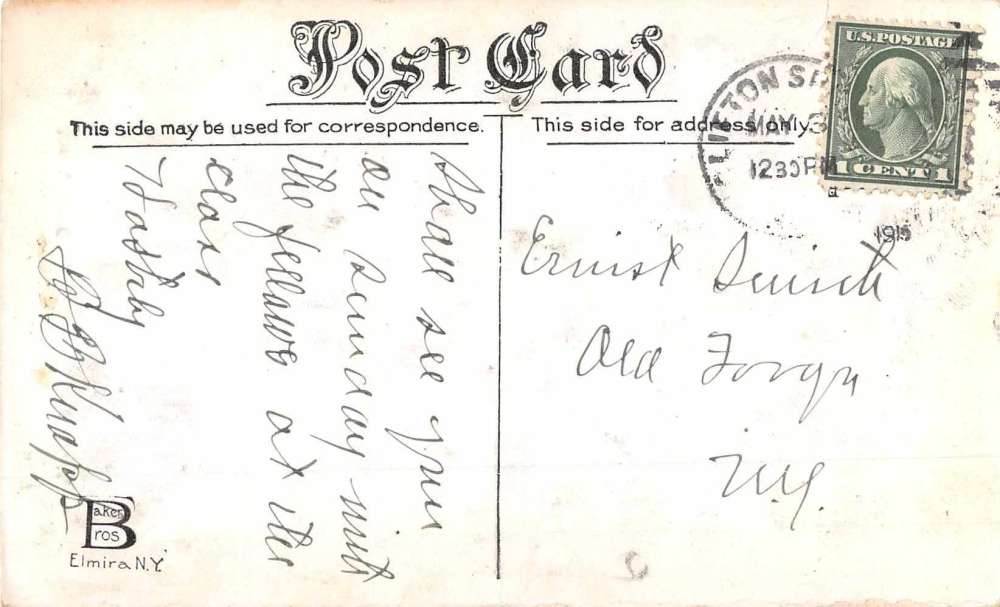 Post Card
This side may be used for correspondence.
This side for address only.
U.S. POSTAGE
1 CENT 1
MAY 3
12 30 PM
1915
Shall see you
on Sunday
the fellows at the
class
Hastily
Knapp
Ernist
Old Forge
N.Y.
Baker
Bros
Elmira N.Y.